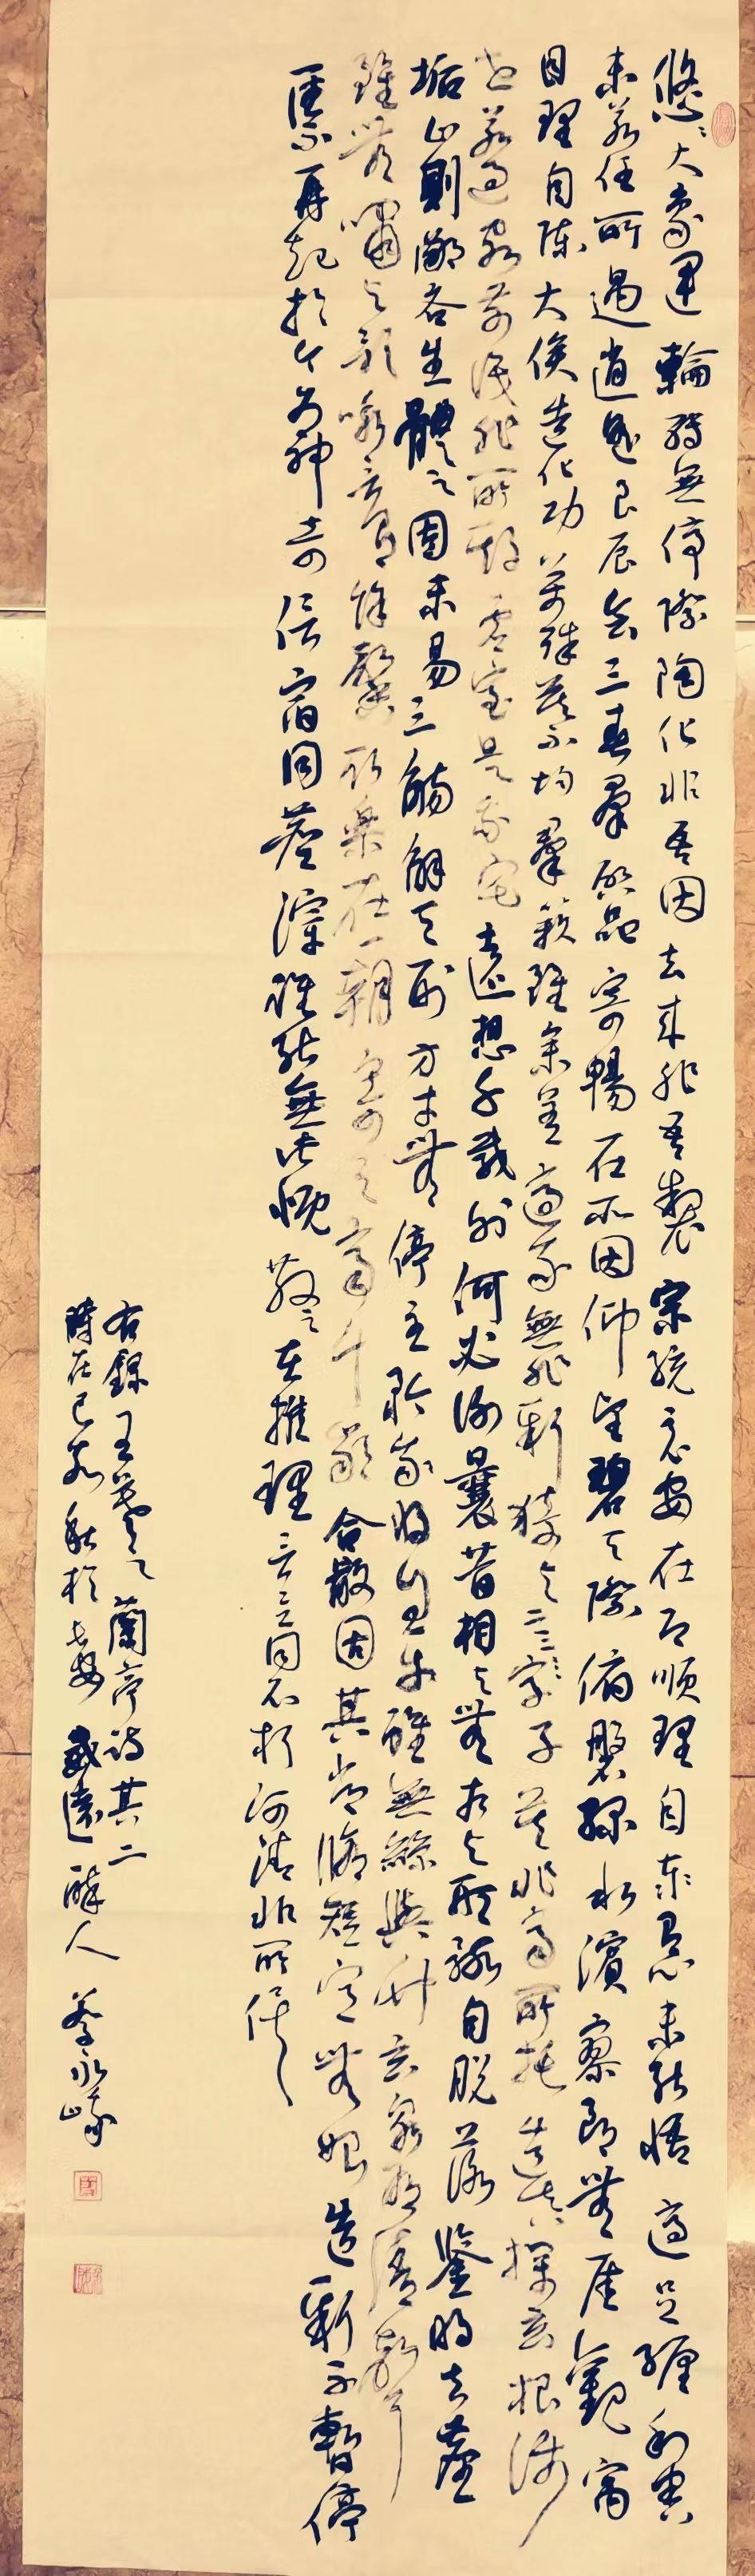 悠々大象運輪轉無停際陶化非吾因去來非吾製宗統竟安在即順理自泰有心未能悟適足纏利害
未若任所遇逍遙良辰會三春啟群品寄暢在所因仰望碧天際俯磐綠水濱寥朗無厓觀寓
目理自陳大矣造化功萬殊莫不均群籟雖參差適我無非新猗與二三子莫匪齊所托造真探玄根涉
世若過客前識非所期虛室是我宅遠想千載外何必謝曩昔相與無相與形骸自脫落鑒明去塵
垢止則鄙吝生體之固未易三觴解天刑方寸無停主矜伐將自平雖無絲與竹玄泉有清聲
雖無嘯與歌詠言有餘馨取樂在一朝寄之齊千齡合散固其常脩短定無始造新不暫停
一往不再起於今為神奇信宿同塵滓誰能無此慨散之在推理言立同不朽河清非所俟
右錄王羲之蘭亭詩其二
時在己亥秋於 威遠醉人 李永峰